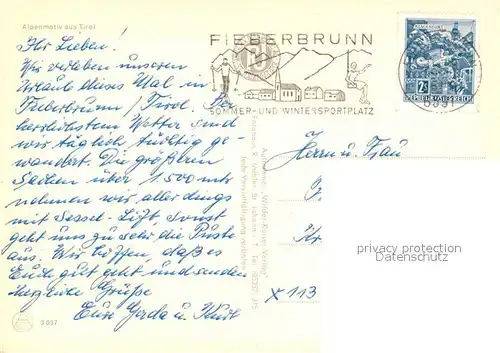 Alpenmotiv aus Tirol
Ihr Lieben!
Wir verleben unseren
Urlaub dieses Mal in
Fieberbrunn / Tirol. Bei
herrlichstem Wetter sind
wir täglich tüchtig ge-
wandert. Die größeren
Sachen über 1500 mtr
nehmen wir allerdings
mit Sessel-Lift sonst
geht uns zu sehr die Puste
aus. Wir hoffen, daß es
Euch gut geht und senden
herzliche Grüße
Eure Gerda u. Kurt
3 037
FIEBERBRUNN
SOMMER- UND WINTERSPORTPLATZ
REPUBLIK ÖSTERREICH
Herrn u. Frau
privacy protection
Datenschutz
x 113